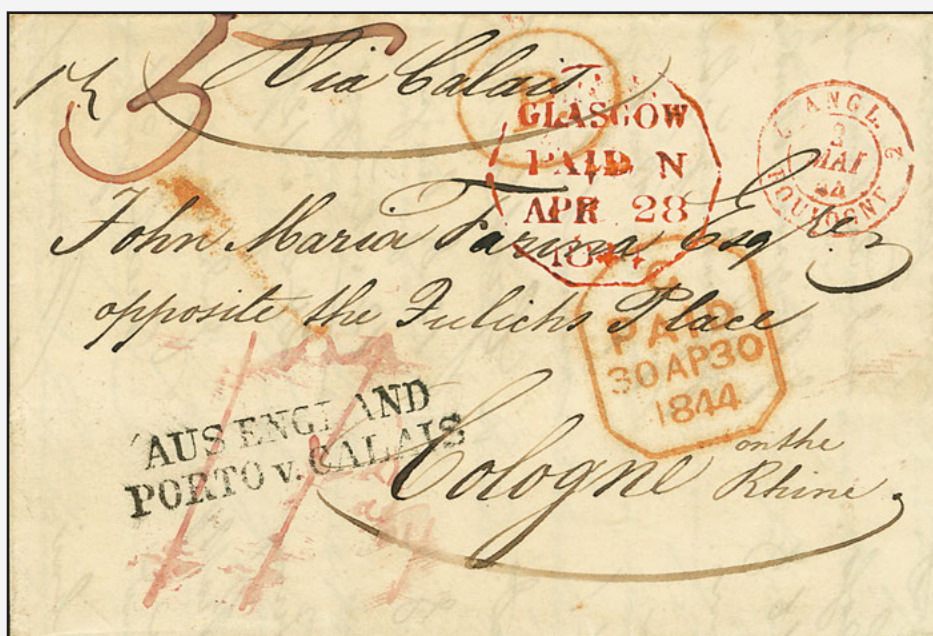 5
Via Calais
GLASGOW
PAID N
APR 28
1844
ANGL. 2
2
MAI
44
John Maria Farina Esq
opposite the Julichs Place
PAID
30 AP 30
1844
AUS ENGLAND
PORTO v. CALAIS
Cologne on the
Rhine